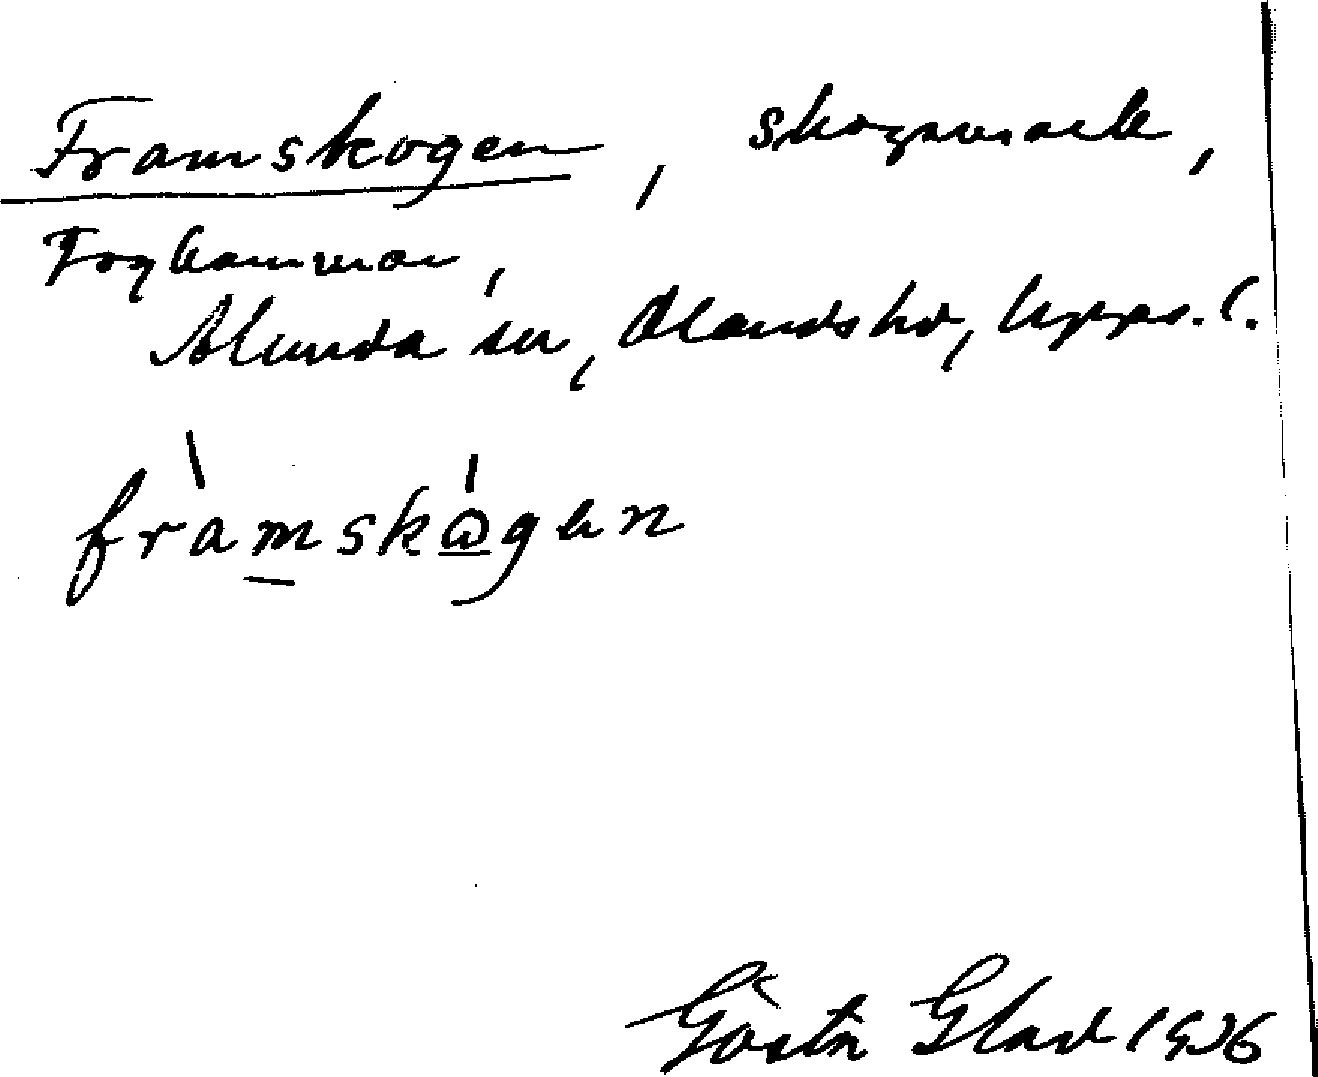 Framskogen, skogsmark,
Foghammar,
Alunda sn, Olands hd, Upps. l.
framskogen
Gösta Glad 1936